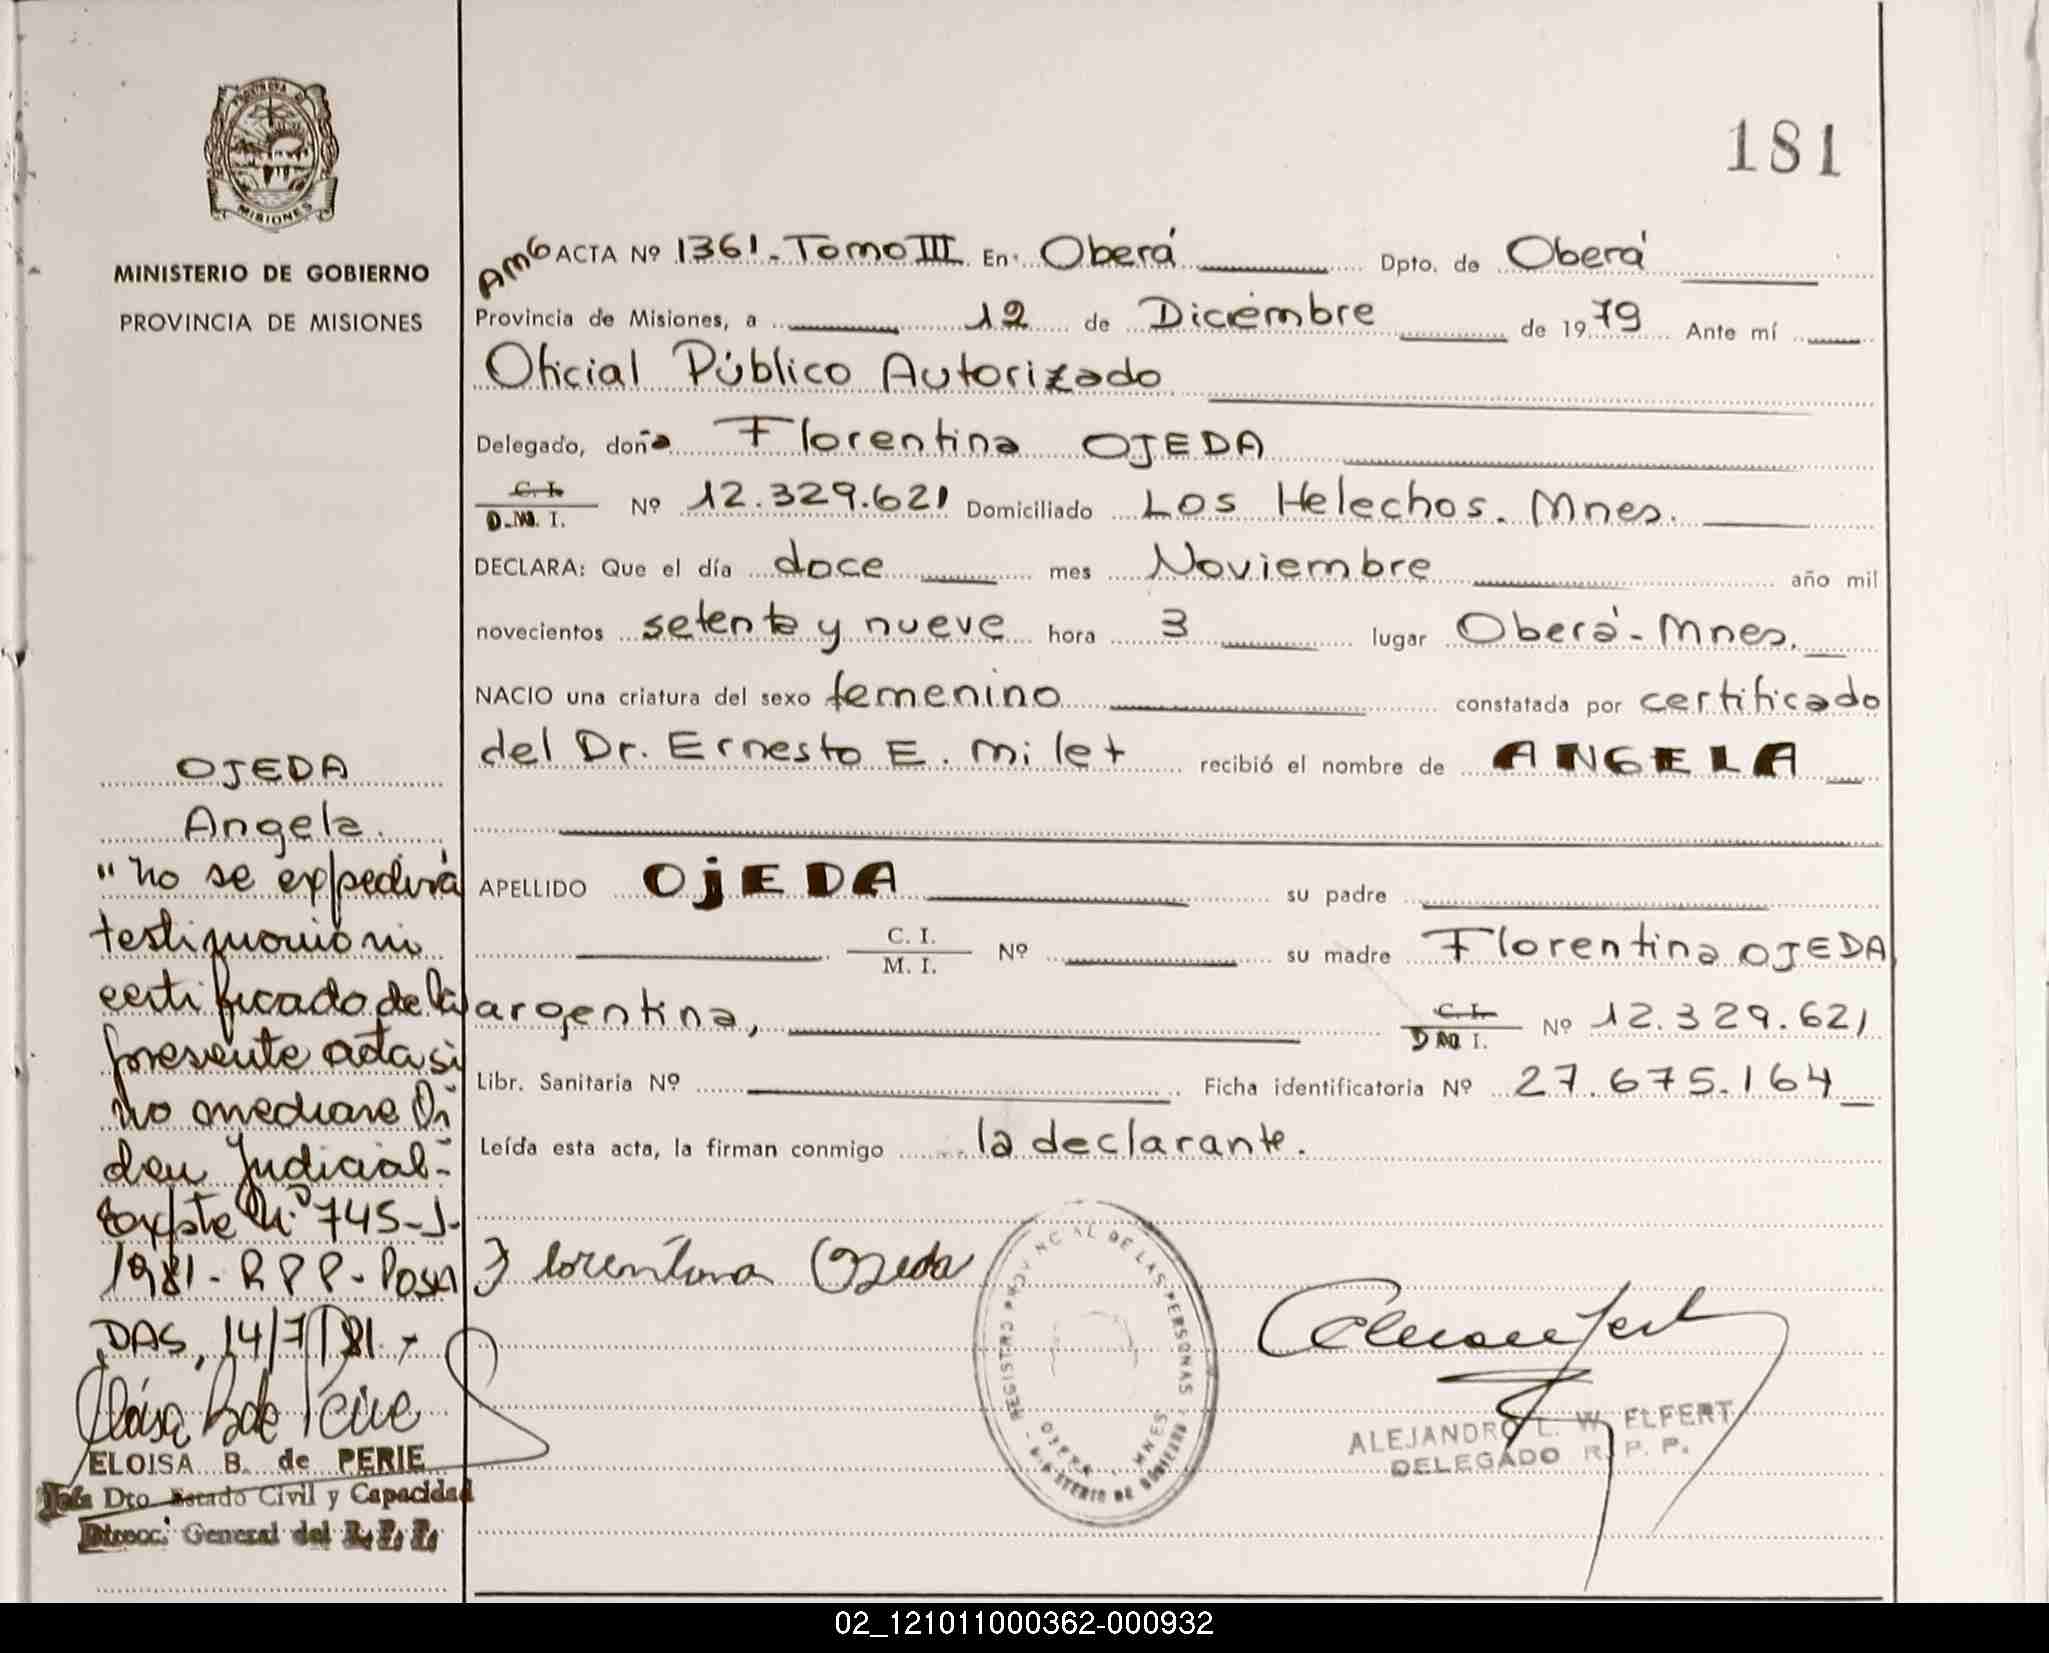 PROVINCIA DE
MISIONES
MINISTERIO DE GOBIERNO
PROVINCIA DE MISIONES
181
AMG ACTA Nº 1361 - Tomo III En Oberá Dpto. de Oberá
Provincia de Misiones, a 12 de Diciembre de 1979 Ante mí
Oficial Público Autorizado
Delegado, doña Florentina OJEDA
C. I.
D.N. I. Nº 12.329.621 Domiciliado Los Helechos. Mnes.
DECLARA: Que el día doce mes Noviembre año mil
novecientos setenta y nueve hora 3 lugar Oberá - Mnes.
NACIO una criatura del sexo femenino constatada por certificado
del Dr. Ernesto E. Milet recibió el nombre de ANGELA
APELLIDO OjEDA su padre
C. I.
M. I. Nº su madre Florentina OJEDA
argentina, C. I.
D N I. Nº 12.329.621
Libr. Sanitaria Nº Ficha identificatoria Nº 27.675.164
Leída esta acta, la firman conmigo la declarante.
Florentina Ojeda
REGISTRO PROVINCIAL DE LAS PERSONAS
MINISTERIO DE GOBIERNO
OBERA - MNES
ALEJANDRO L. W. ELFERT
DELEGADO R. P. P.
OJEDA
Angela.
"No se expedirá
testimonio ni
certificado de la
presente acta si
no mediare Or
den Judicial-
Expte Nº 745-J-
1981- R P P - Posa
DAS, 14/7/81.-
ELOISA B. de PERIE
Jefa Dto. Estado Civil y Capacidad
Direcc. General del R. P. P.
02_121011000362-000932